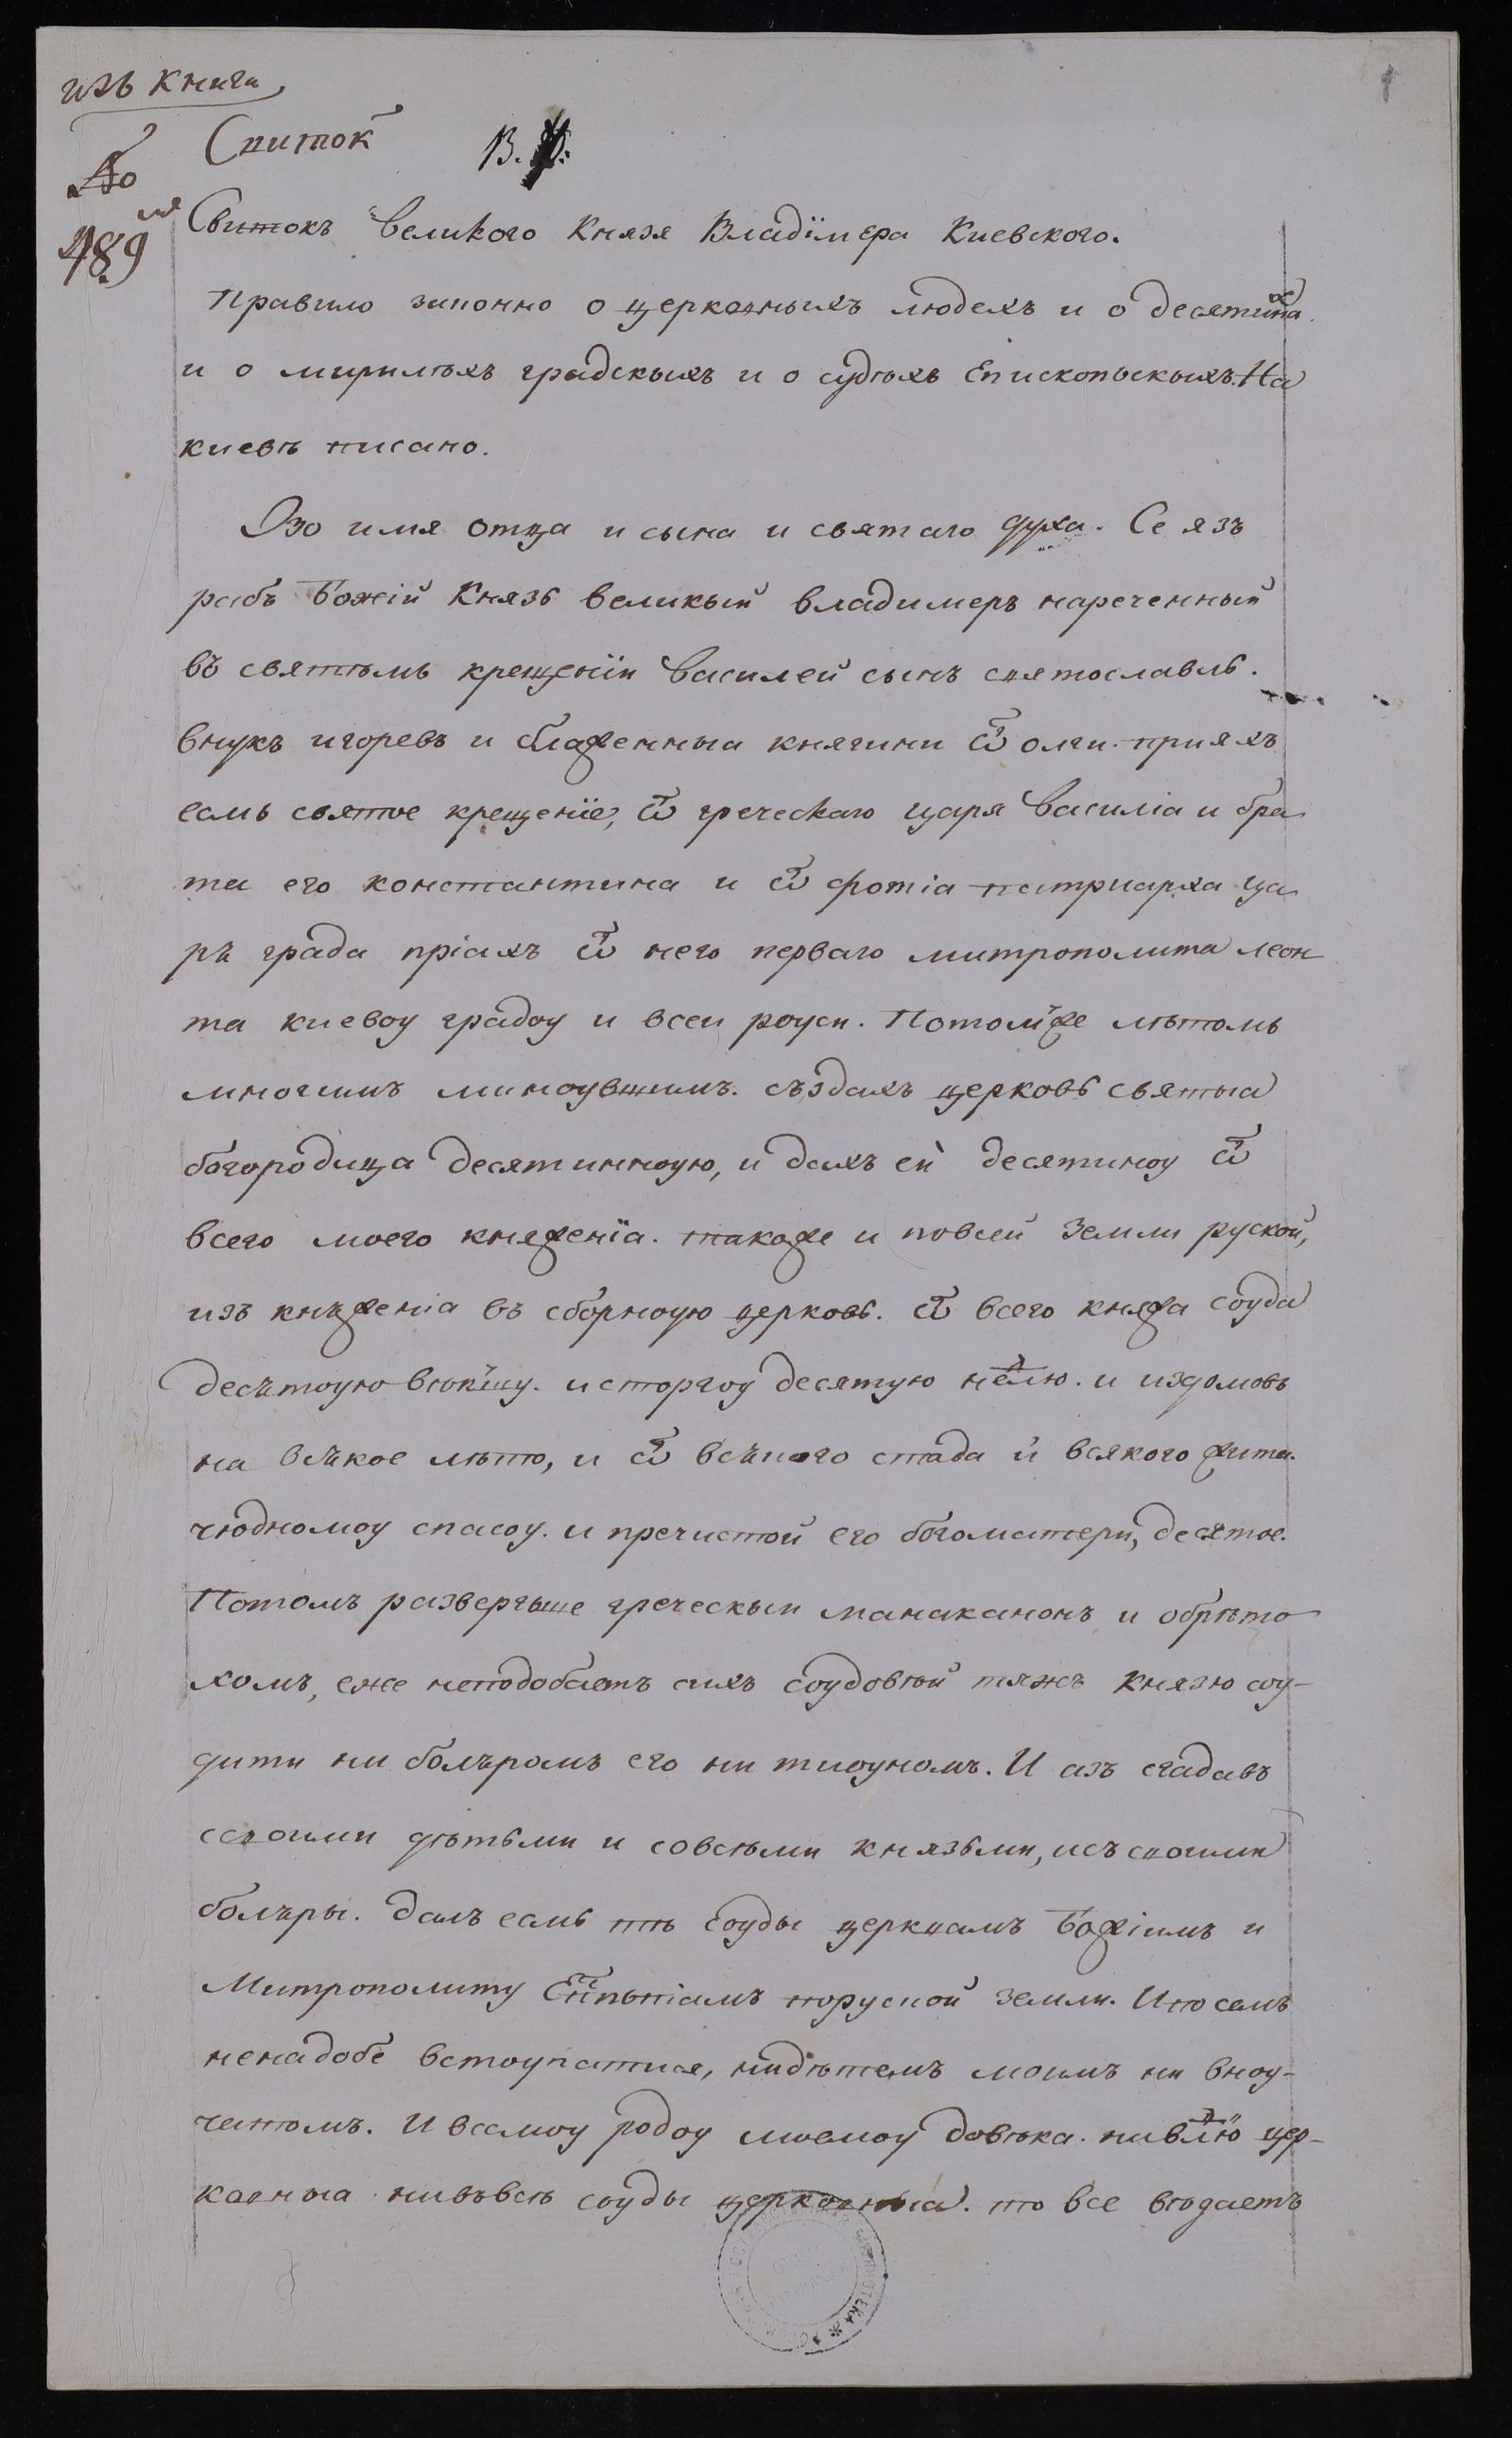 изъ книги
Спиток
В.
До
489
Свитокъ великого Князя Владїмера Киевского.
Правило законно о церковныхъ людехъ и о десятинах
и о мирилѣхъ градскыхъ и о судѣхъ Епископьскыхъ. На
киевѣ писано.
Во имя отца и сына и святаго духа. Се язъ
рабъ Божій Князь великый владимеръ нареченный
въ святѣмь крещенїи Василей сынъ святославль.
внукъ игоревъ и блаженныа княгини ѿ олги. прияхъ
есмь святое крещенїе, ѿ греческаго царя Василіа и бра
та его константина и ѿ фотіа патриарха ца
рѣ града пріахъ ѿ него перваго митрополита леон
та киевоу градоу и всеи роуси. Потомже лѣтомь
многимъ миноувшимъ. създахъ церковь святыа
богородица десятинноую, и дахъ еи десятиноу ѿ
всего моего княженїа. такоже и повсей земли руской,
изъ кнѣженіа въ сборноую церковь. ѿ всего княжа соуда
десѣтоую вѣкшу. исторгоу десятую нелю. и издомовъ
на всѣкое лѣто, и ѿ всѣкого стада и всякого жита.
чюдномоу спасоу. и пречистой его богоматери, десятое.
Потомъ разверъгьше греческыи манаканонъ и обрѣто
хомъ, еже неподобаетъ сихъ соудовъ и тяжъ князю соу-
дити ни болѣромъ его ни тиоуномъ. И азъ сгадавъ
сво­ими дѣтьми и совсѣми князьми, исъ своими
болѣры. далъ есмь тѣ соуды церквамъ Божіимъ и
Митрополиту Епⷭпьпіамъ поруской земли. И по семъ
ненадобе вступоатися, нидѣтемъ моимъ ни вноу-
чатомъ. И всемоу родоу моемоу довѣка. нивлю цер-
ковныа нивъвсѣ соуды церковныа. то все въдаетъ